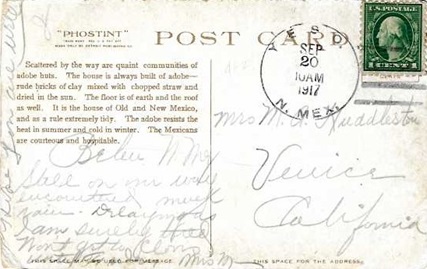 "PHOSTINT"
POST CARD
Scattered by the way are quaint communities of
adobe huts. The house is always built of adobe—
rude bricks of clay mixed with chopped straw and
dried in the sun. The floor is of earth and the roof
as well. It is the house of Old and New Mexico,
and as a rule extremely tidy. The adobe resists the
heat in summer and cold in winter. The Mexicans
are courteous and hospitable.
SEP
20
10AM
1917
N. MEX.
U.S. POSTAGE
1
1
Mrs M. A. Huddleston
Venice
California
Belen N Mex
Still on our way
encountered much
rain. Delayed
I am surely tired
Mrs M
THIS SPACE MAY BE USED FOR MESSAGE
THIS SPACE FOR THE ADDRESS.